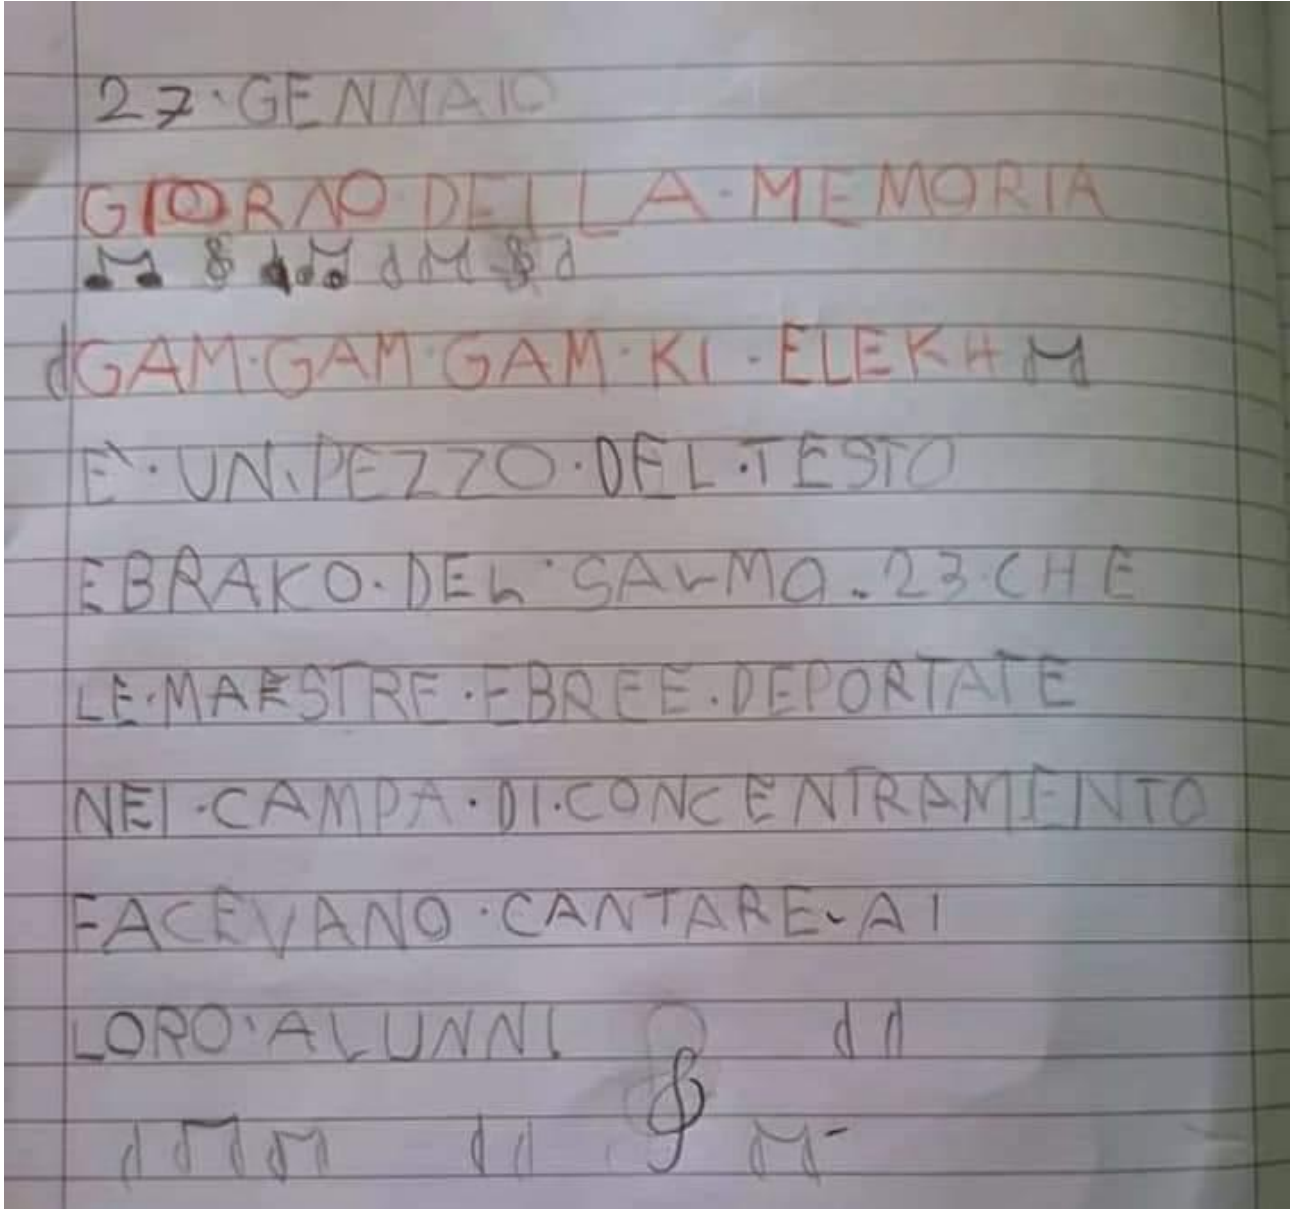 27·GENNAIO
GIORNO·DELLA·MEMORIA
GAM·GAM·GAM·KI·ELEKH
E'·UN·PEZZO·DEL·TESTO
EBRAKO·DEL·SALMO·23·CHE
LE·MAESTRE·EBREE·DEPORTATE
NEI·CAMPA·DI·CONCENTRAMENTO
FACEVANO·CANTARE·AI
LORO·ALUNNI